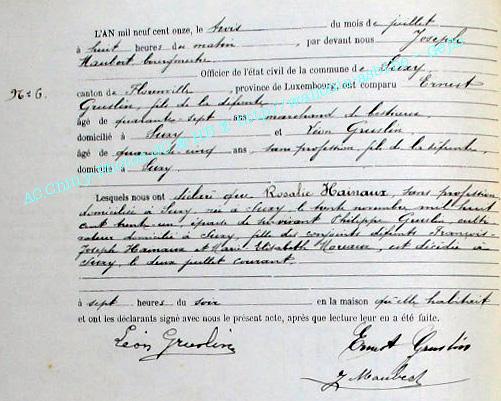 L'AN mil neuf cent onze, le trois du mois de juillet
à huit heures du matin, par devant nous Joseph
Maubert bourgmestre
Officier de l'état civil de la commune de Suxy,
N° 6. canton de Florenville, province de Luxembourg, est comparu Ernest
Gruslin, fils de la défunte
âgé de quarante sept ans, marchand de bestiaux
domicilié à Suxy et Léon Gruslin
âgé de quarante cinq ans, sans profession fils de la défunte,
domicilié à Suxy.
Lesquels nous ont déclaré que Rosalie Hainaux, sans profession
domiciliée à Suxy née à Suxy, le trente novembre mil huit
cent trente un, épouse de survivant Philippe Gruslin culti-
vateur domicilié à Suxy, fille des conjoints défunts François-
Joseph Hainaux et Marie Elisabeth Moreaux, est décédée à
Suxy, le deux juillet courant.
à sept heures du soir en la maison qu'elle habitait
et ont les déclarants signé avec nous le présent acte, après que lecture leur en a été faite.
Léon Gruslin Ernest Gruslin
J Maubert